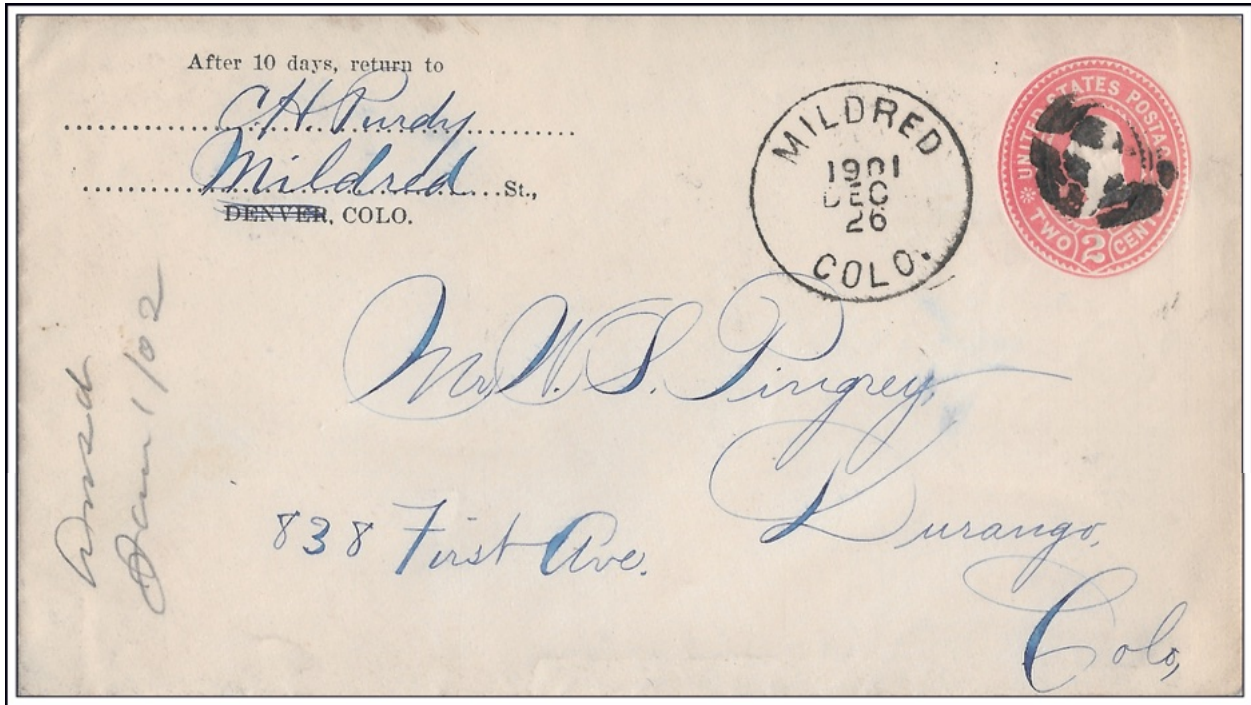 After 10 days, return to
C H Purdy
Mildred St.,
DENVER, COLO.
MILDRED
1901
DEC
26
COLO.
UNITED STATES POSTAGE
TWO 2 CENTS
Mr. W. S. Pingrey,
838 First Ave.
Durango,
Colo,
Answd
Jan 1/02